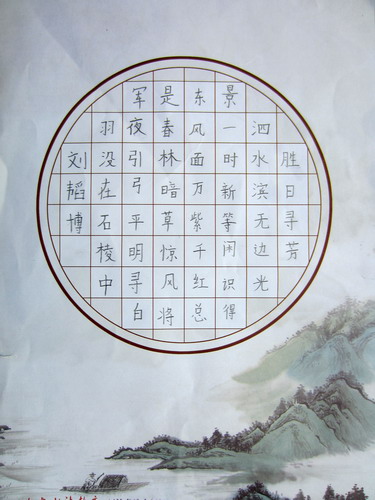 胜日寻芳
泗水滨无边光
景一时新等闲识得
东风面万紫千红总
是春林暗草惊风将
军夜引弓平明寻白
羽没在石棱中
刘韬博